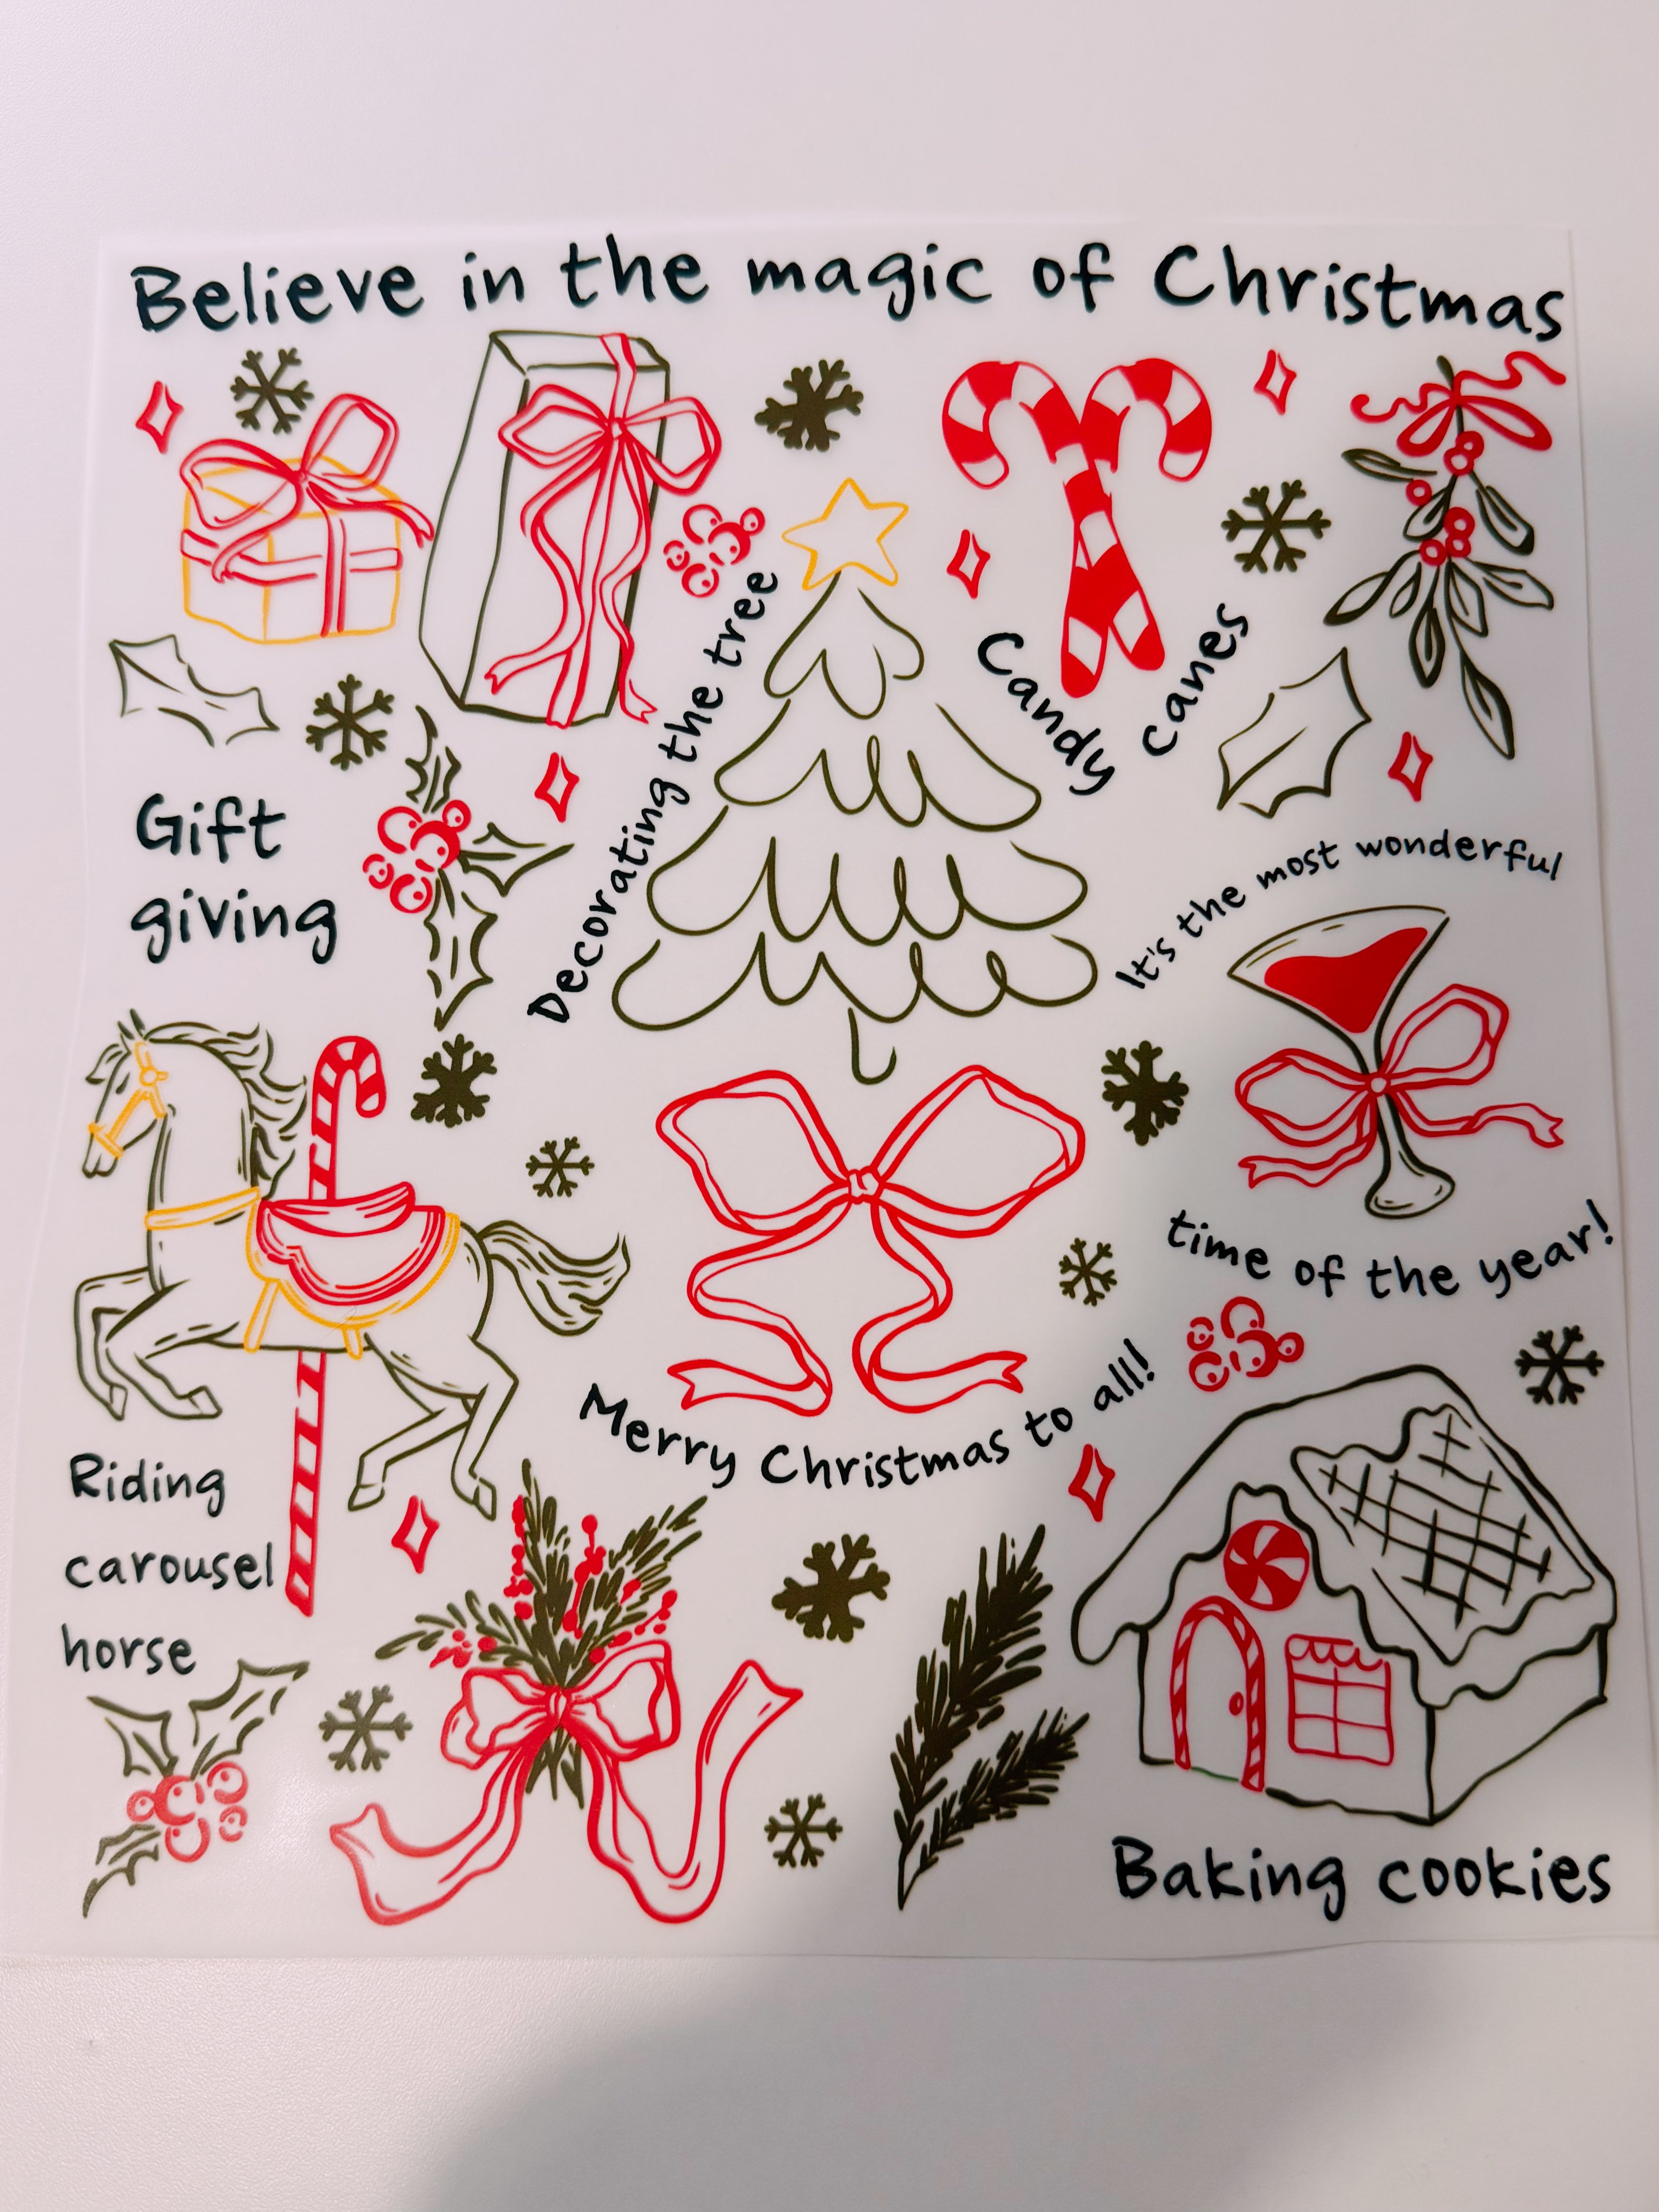 Believe in the magic of Christmas
Decorating the tree
Candy
canes
Gift
giving
It's the most wonderful
time of the year!
Merry Christmas to all!
Riding
carousel
horse
Baking cookies